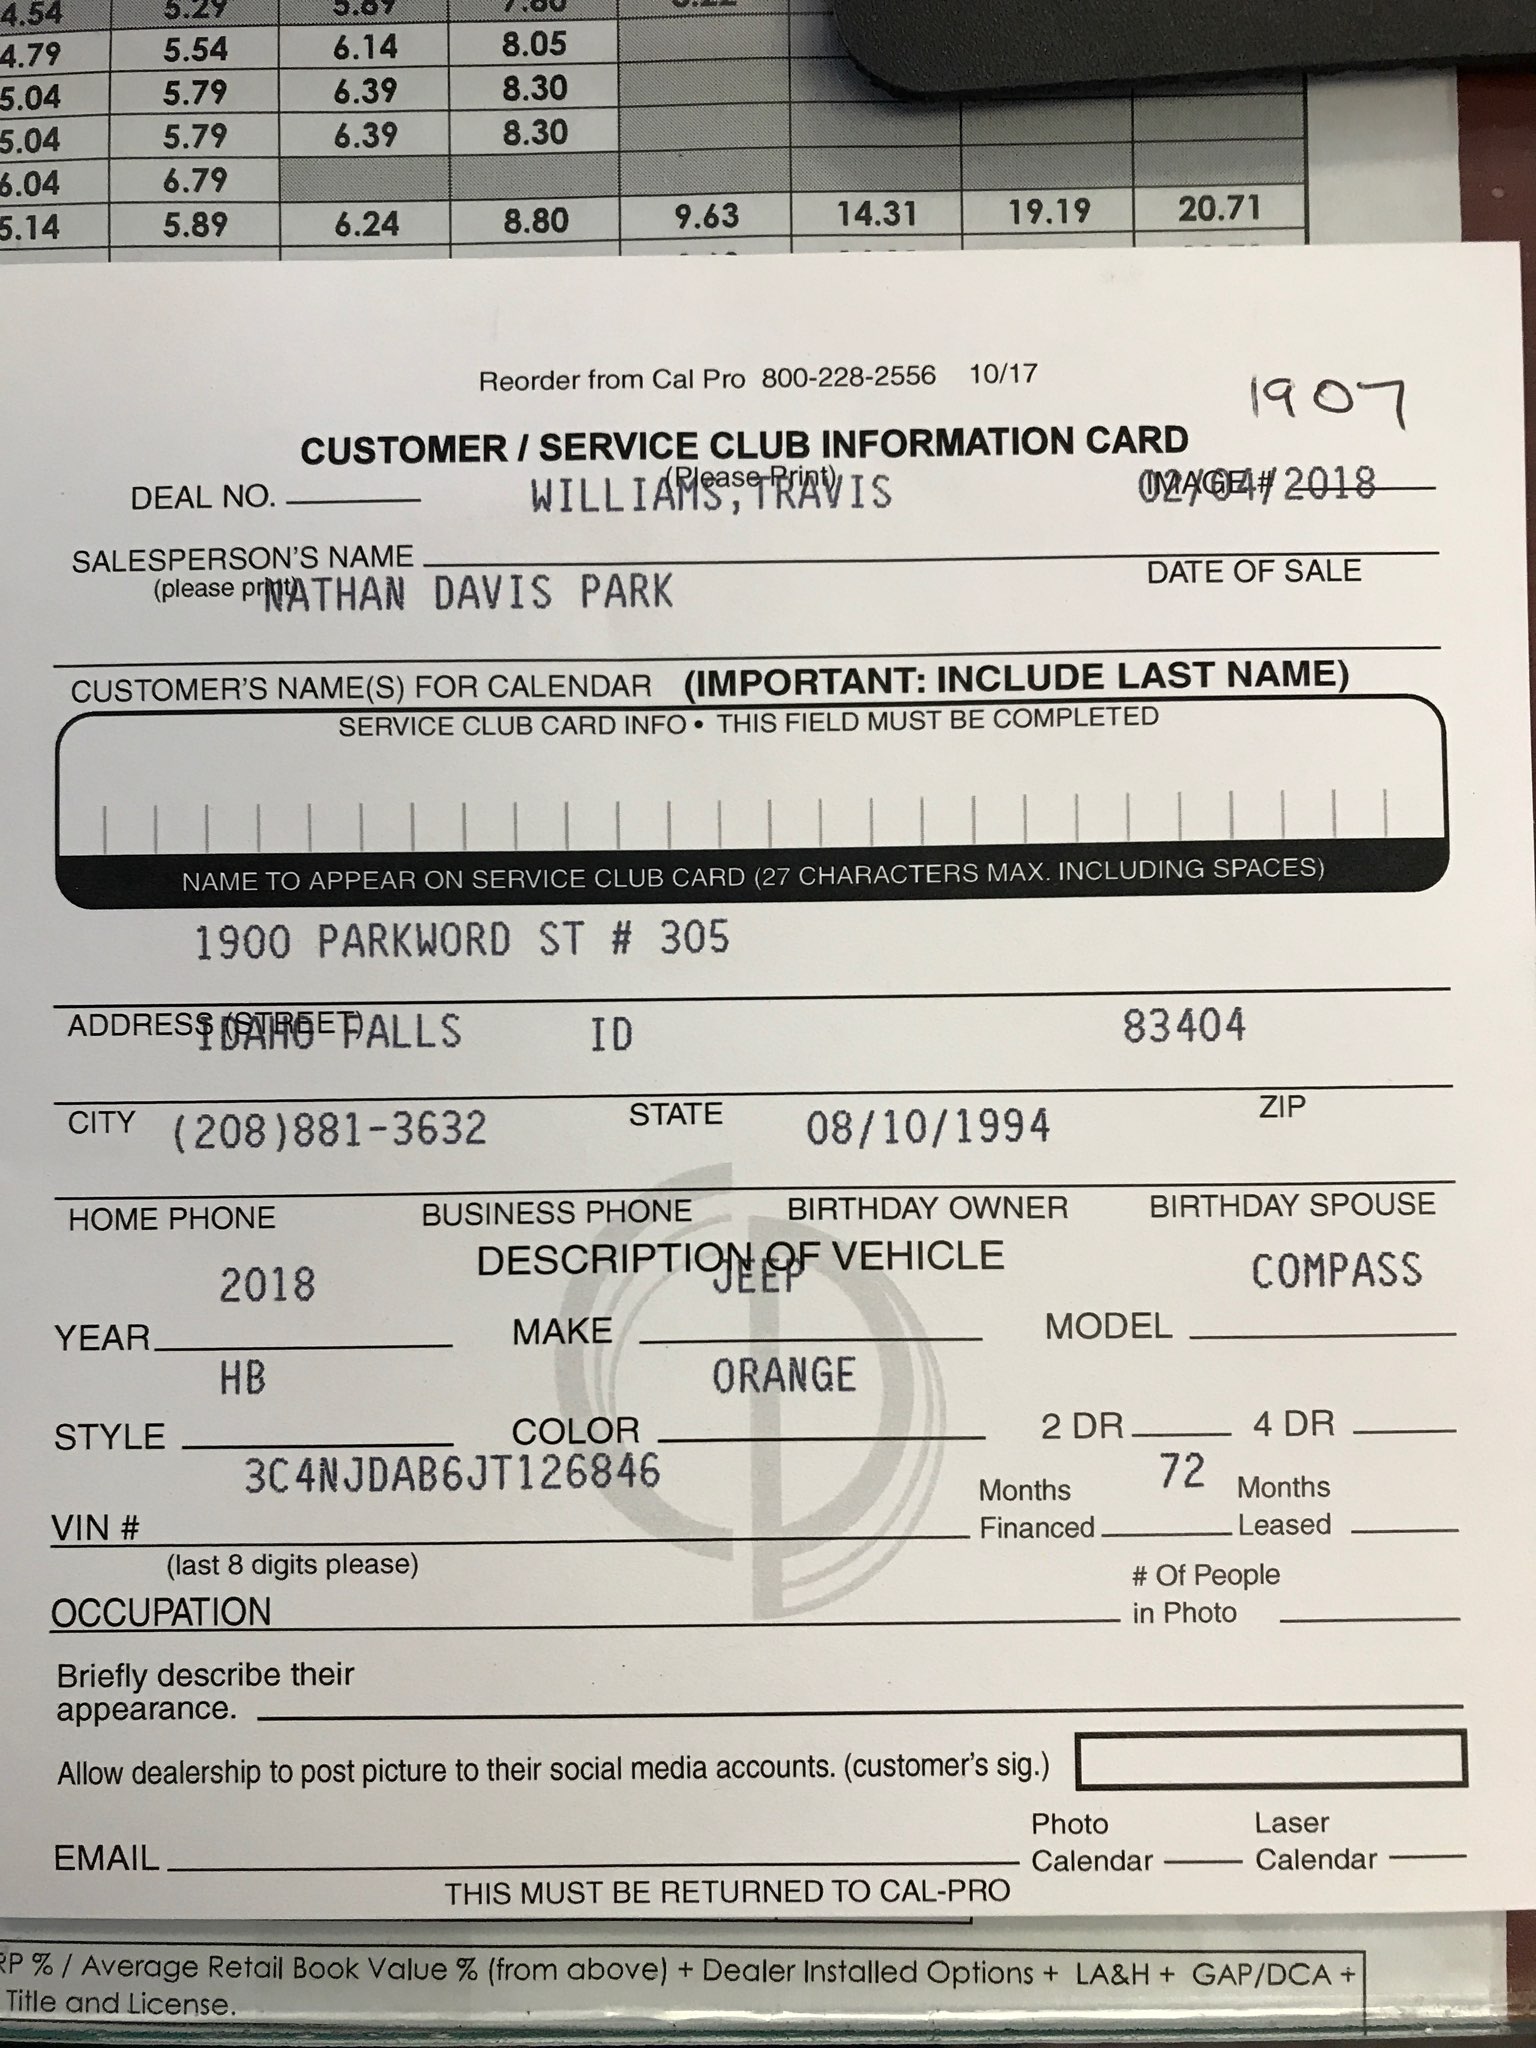 4.54 5.29 5.89 7.80
4.79 5.54 6.14 8.05
5.04 5.79 6.39 8.30
5.04 5.79 6.39 8.30
6.04 6.79
5.14 5.89 6.24 8.80 9.63 14.31 19.19 20.71
Reorder from Cal Pro 800-228-2556 10/17
1907
CUSTOMER / SERVICE CLUB INFORMATION CARD
(Please Print)
DEAL NO. WILLIAMS,TRAVIS IMAGE # 02/04/2018
SALESPERSON'S NAME DATE OF SALE
(please print) NATHAN DAVIS PARK
CUSTOMER'S NAME(S) FOR CALENDAR (IMPORTANT: INCLUDE LAST NAME)
SERVICE CLUB CARD INFO • THIS FIELD MUST BE COMPLETED
NAME TO APPEAR ON SERVICE CLUB CARD (27 CHARACTERS MAX. INCLUDING SPACES)
1900 PARKWORD ST # 305
ADDRESS (STREET)
IDAHO FALLS ID 83404
CITY STATE ZIP
(208)881-3632 08/10/1994
HOME PHONE BUSINESS PHONE BIRTHDAY OWNER BIRTHDAY SPOUSE
DESCRIPTION OF VEHICLE
2018 JEEP COMPASS
YEAR MAKE MODEL
HB ORANGE
STYLE COLOR 2 DR 4 DR
3C4NJDAB6JT126846 72
VIN # Months Financed Months Leased
(last 8 digits please)
OCCUPATION # Of People in Photo
Briefly describe their
appearance.
Allow dealership to post picture to their social media accounts. (customer's sig.)
EMAIL Photo Calendar Laser Calendar
THIS MUST BE RETURNED TO CAL-PRO
RP % / Average Retail Book Value % (from above) + Dealer Installed Options + LA&H + GAP/DCA +
Title and License.